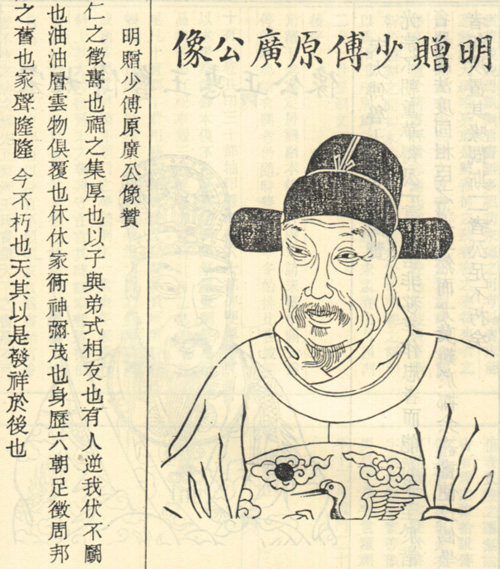 明贈少傅原廣公像
明贈少傅原廣公像贊
仁之徵壽也福之集厚也以子與弟式相友也有人逆我伏不鬭
也油油層雲物俱覆也休休家衖神彌茂也身歷六朝足徵周邦
之舊也家聲隆隆 今不朽也天其以是發祥於後也